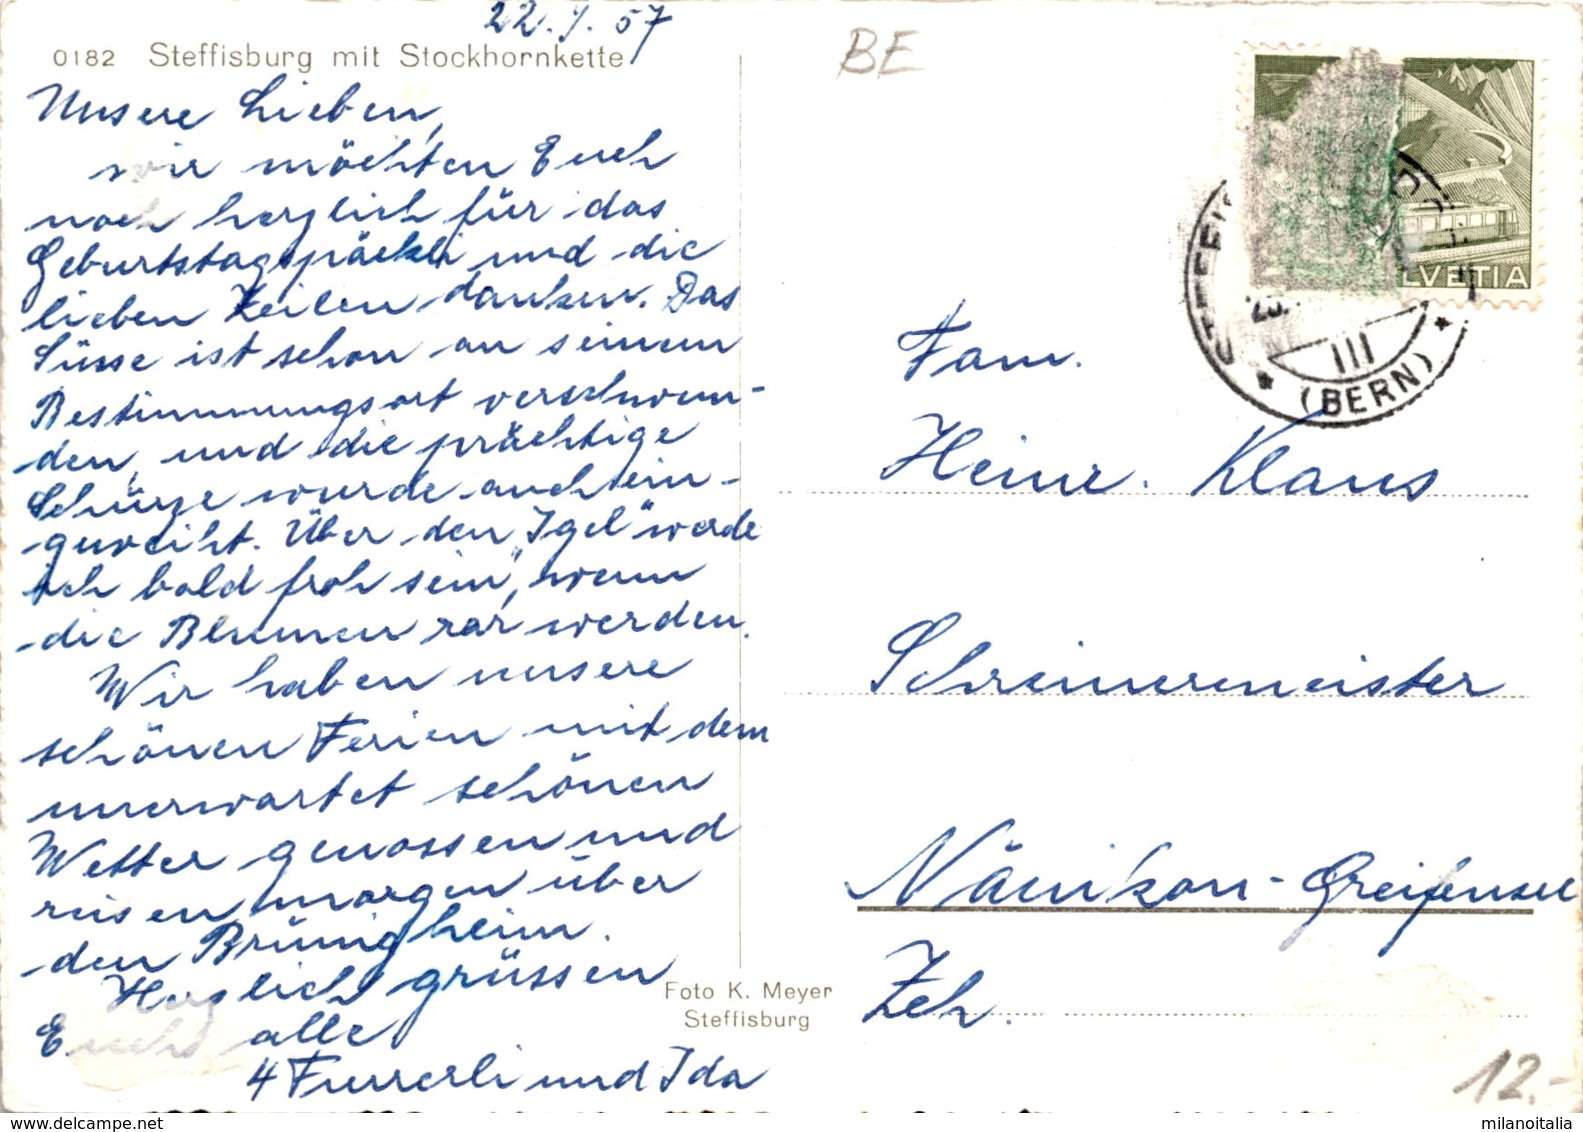 22. 9. 57
0182 Steffisburg mit Stockhornkette
Unsere Lieben,
wir möchten Euch
noch herzlich für das
Geburtstagspäckli und die
lieben Zeilen danken. Das
Süsse ist schon an seinem
Bestimmungsort verschwun-
den, und die prächtige
Schürze wurde auch ein-
geweiht. Über den „Igel" werde
ich bald froh sein, wenn
die Blumen rar werden.
Wir haben unsere
schönen Ferien mit dem
unerwartet schönen
Wetter genossen und
reisen morgen über
den Brünig heim.
Herzlich grüssen
Euch alle
4 Furrerli und Ida
Foto K. Meyer
Steffisburg
BE
HELVETIA
STEFFISBURG
III
(BERN)
Fam.
Heinr. Klaus
Schreinermeister
Nänikon-Greifensee
Zch.
12.-
milanoitalia